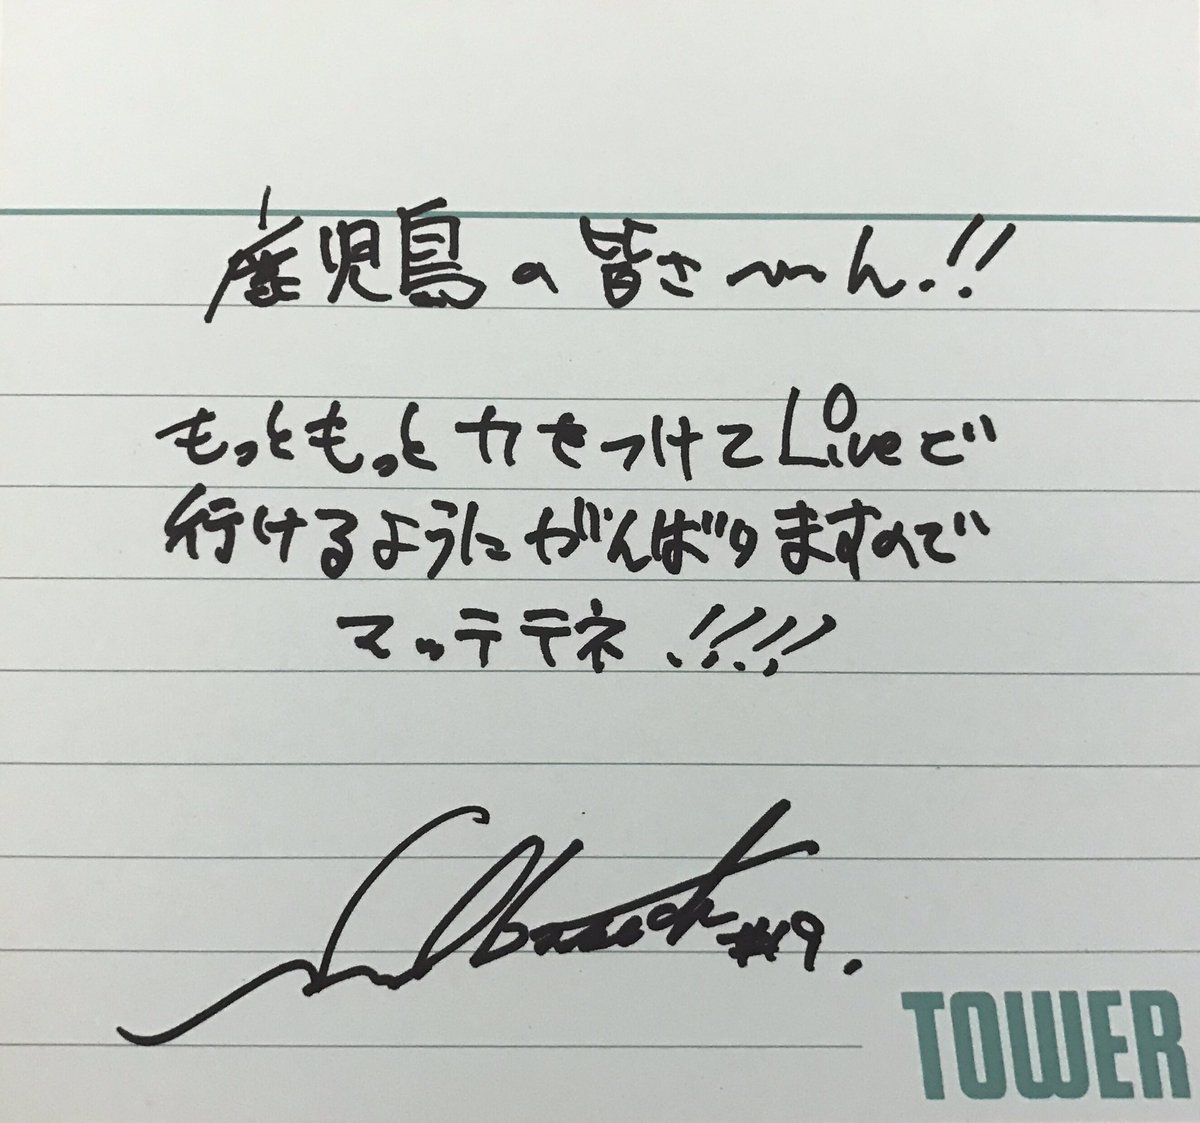 鹿児島の皆さ〜ん!!
もっともっと力をつけてLiveで
行けるようにがんばりますので
マッテテネ!!!!
#19.
TOWER